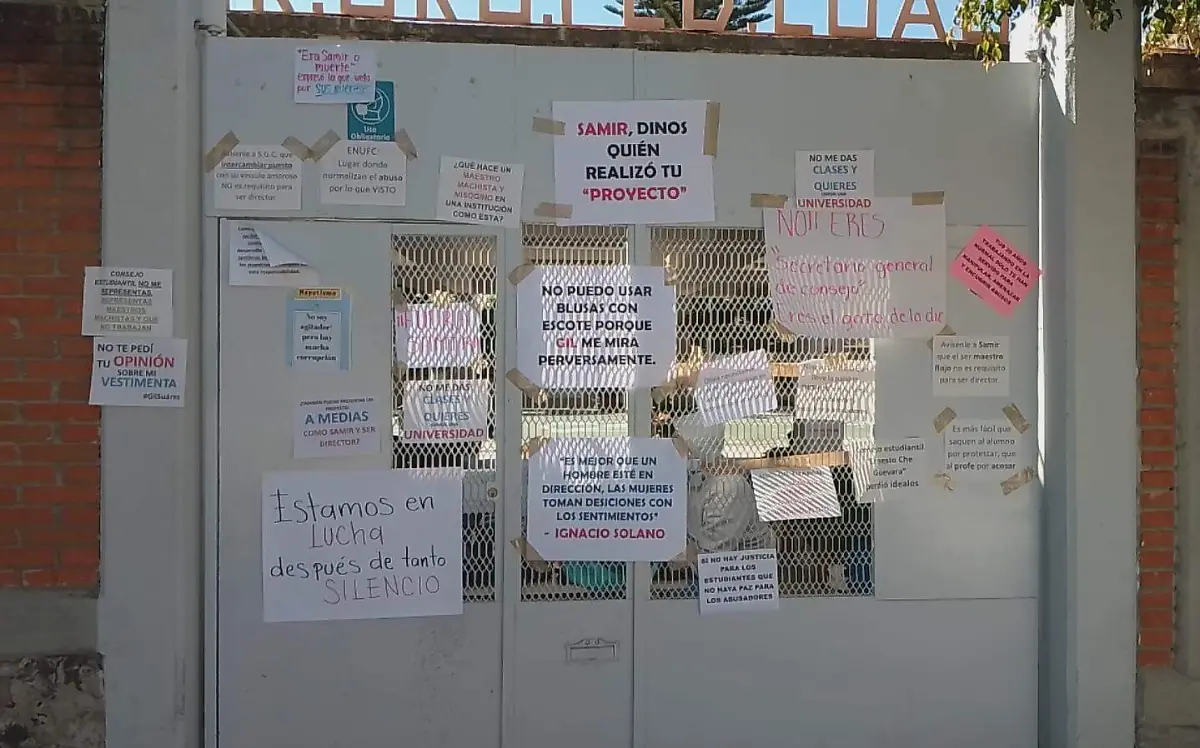 "Era Samir o
muerte"
expresó la que vela
por SUS interese
Uso
Obligatorio
Avísenle a S.G.C. que
intercambiar puesto
con su vínculo amoroso
NO es requisito para
ser director
ENUFC:
Lugar donde
normalizan el abuso
por lo que VISTO
¿QUÉ HACE UN
MAESTRO
MACHISTA Y
MISOGINO EN
UNA INSTITUCIÓN
COMO ESTA?
SAMIR, DINOS
QUIÉN
REALIZÓ TU
"PROYECTO"
NO ME DAS
CLASES Y
QUIERES
UNIVERSIDAD
NO!! ERES
"Secretario general
de consejo"
Eres el gato de la dir
POR 20 AÑOS
TRABAJANDO EN LA
NORMAL SOLO TE HAN
SERVIDO PARA
MANIPULAR, AMENAZAR
Y ENCUBRIR ABUSOS
CONSEJO
ESTUDIANTIL NO ME
REPRESENTAS,
REPRESENTAS
MAESTROS
MACHISTAS Y QUE
NO TRABAJAN
NO TE PEDÍ
TU OPINIÓN
SOBRE MI
VESTIMENTA
#GilSuárez
Nepotismo
No soy
agitador
pero hay
mucha
corrupción!
NO PUEDO USAR
BLUSAS CON
ESCOTE PORQUE
GIL ME MIRA
PERVERSAMENTE.
¿TAMBIÉN PUEDO PRESENTAR UN
PROYECTO
A MEDIAS
COMO SAMIR Y SER
DIRECTOR?
NO ME DAS
CLASES Y
QUIERES
UNIVERSIDAD
Avísenle a Samir
que el ser maestro
flojo no es requisito
para ser director.
Es más fácil que
saquen al alumno
por protestar, que
al profe por acosar
estudiantil
"Ernesio Che
Guevara"
perdió ideales
"ES MEJOR QUE UN
HOMBRE ESTÉ EN
DIRECCIÓN, LAS MUJERES
TOMAN DESICIONES CON
LOS SENTIMIENTOS"
- IGNACIO SOLANO
Estamos en
LUCHA
después de tanto
SILENCIO
SI NO HAY JUSTICIA
PARA LOS
ESTUDIANTES QUE
NO HAYA PAZ PARA
LOS ABUSADORES